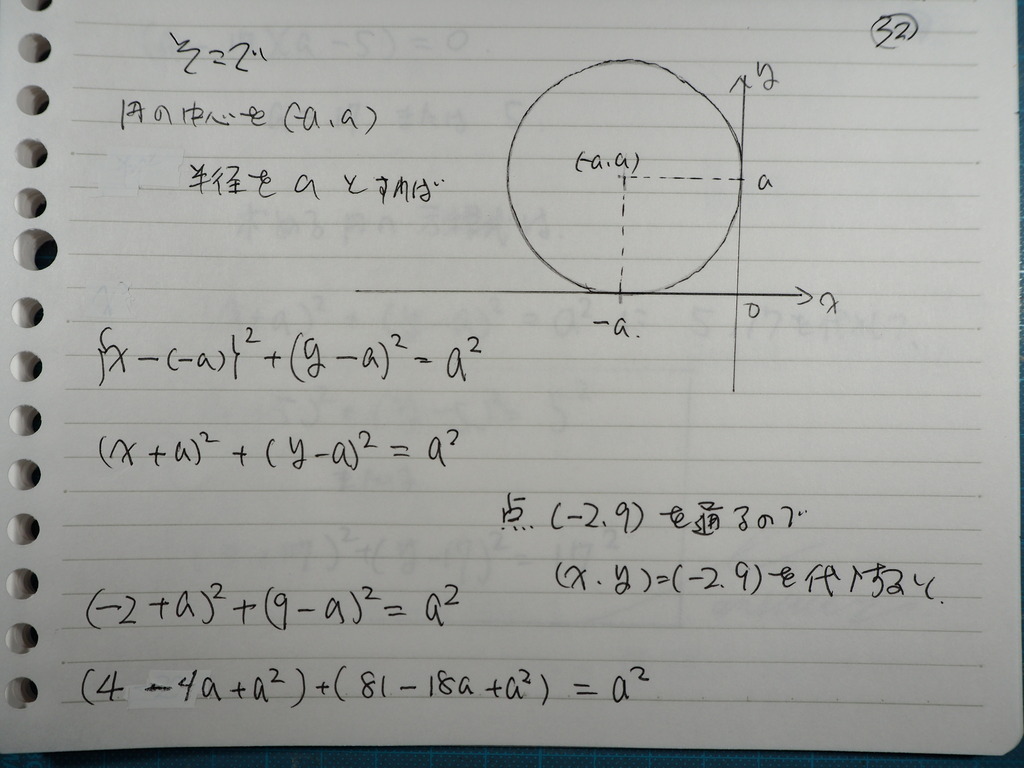 32
そこで
円の中心を(-a,a)
半径をaとすれば
y
(-a,a)
a
0
x
-a.
{x-(-a)}²+(y-a)²=a²
(x+a)²+(y-a)²=a²
点(-2.9)を通るので
(x.y)=(-2.9)を代入すると.
(-2+a)²+(9-a)²=a²
(4-4a+a²)+(81-18a+a²)=a²